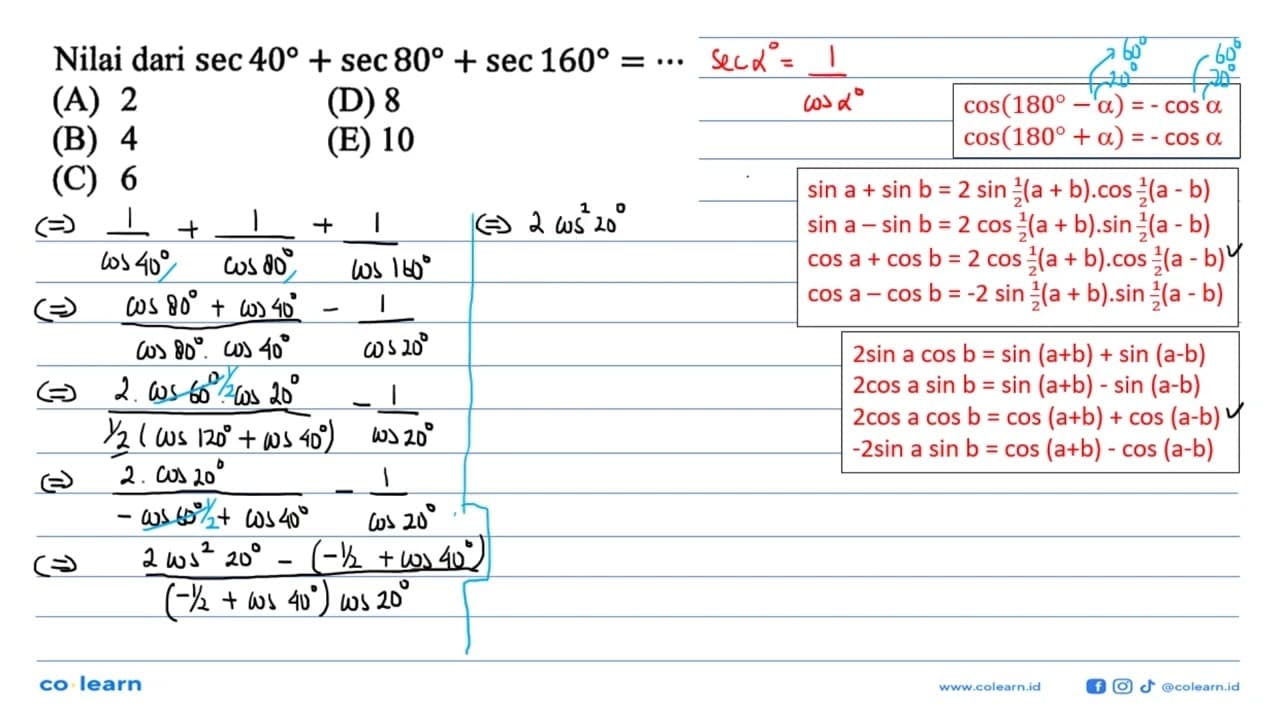 Nilai dari sec 40° + sec 80° + sec 160° = ⋯
(A) 2
(B) 4
(C) 6
(D) 8
(E) 10
sec α° = 1 / cos α°
60° 60°
20° 20°
cos(180° − α) = - cos α
cos(180° + α) = - cos α
sin a + sin b = 2 sin ½(a + b).cos ½(a - b)
sin a – sin b = 2 cos ½(a + b).sin ½(a - b)
cos a + cos b = 2 cos ½(a + b).cos ½(a - b) ✓
cos a – cos b = -2 sin ½(a + b).sin ½(a - b)
2sin a cos b = sin (a+b) + sin (a-b)
2cos a sin b = sin (a+b) - sin (a-b)
2cos a cos b = cos (a+b) + cos (a-b) ✓
-2sin a sin b = cos (a+b) - cos (a-b)
(=) 1 / cos 40° + 1 / cos 80° + 1 / cos 160°
(=) cos 80° + cos 40° / cos 80° . cos 40° − 1 / cos 20°
(=) 2 . cos 60° ½ . cos 20° / ½ (cos 120° + cos 40°) − 1 / cos 20°
(=) 2 . cos 20° / − cos 60° ½ + cos 40° − 1 / cos 20°
(=) 2 cos² 20° − (−½ + cos 40°) / (−½ + cos 40°) cos 20°
(=) 2 cos² 20°
co learn
www.colearn.id
@colearn.id